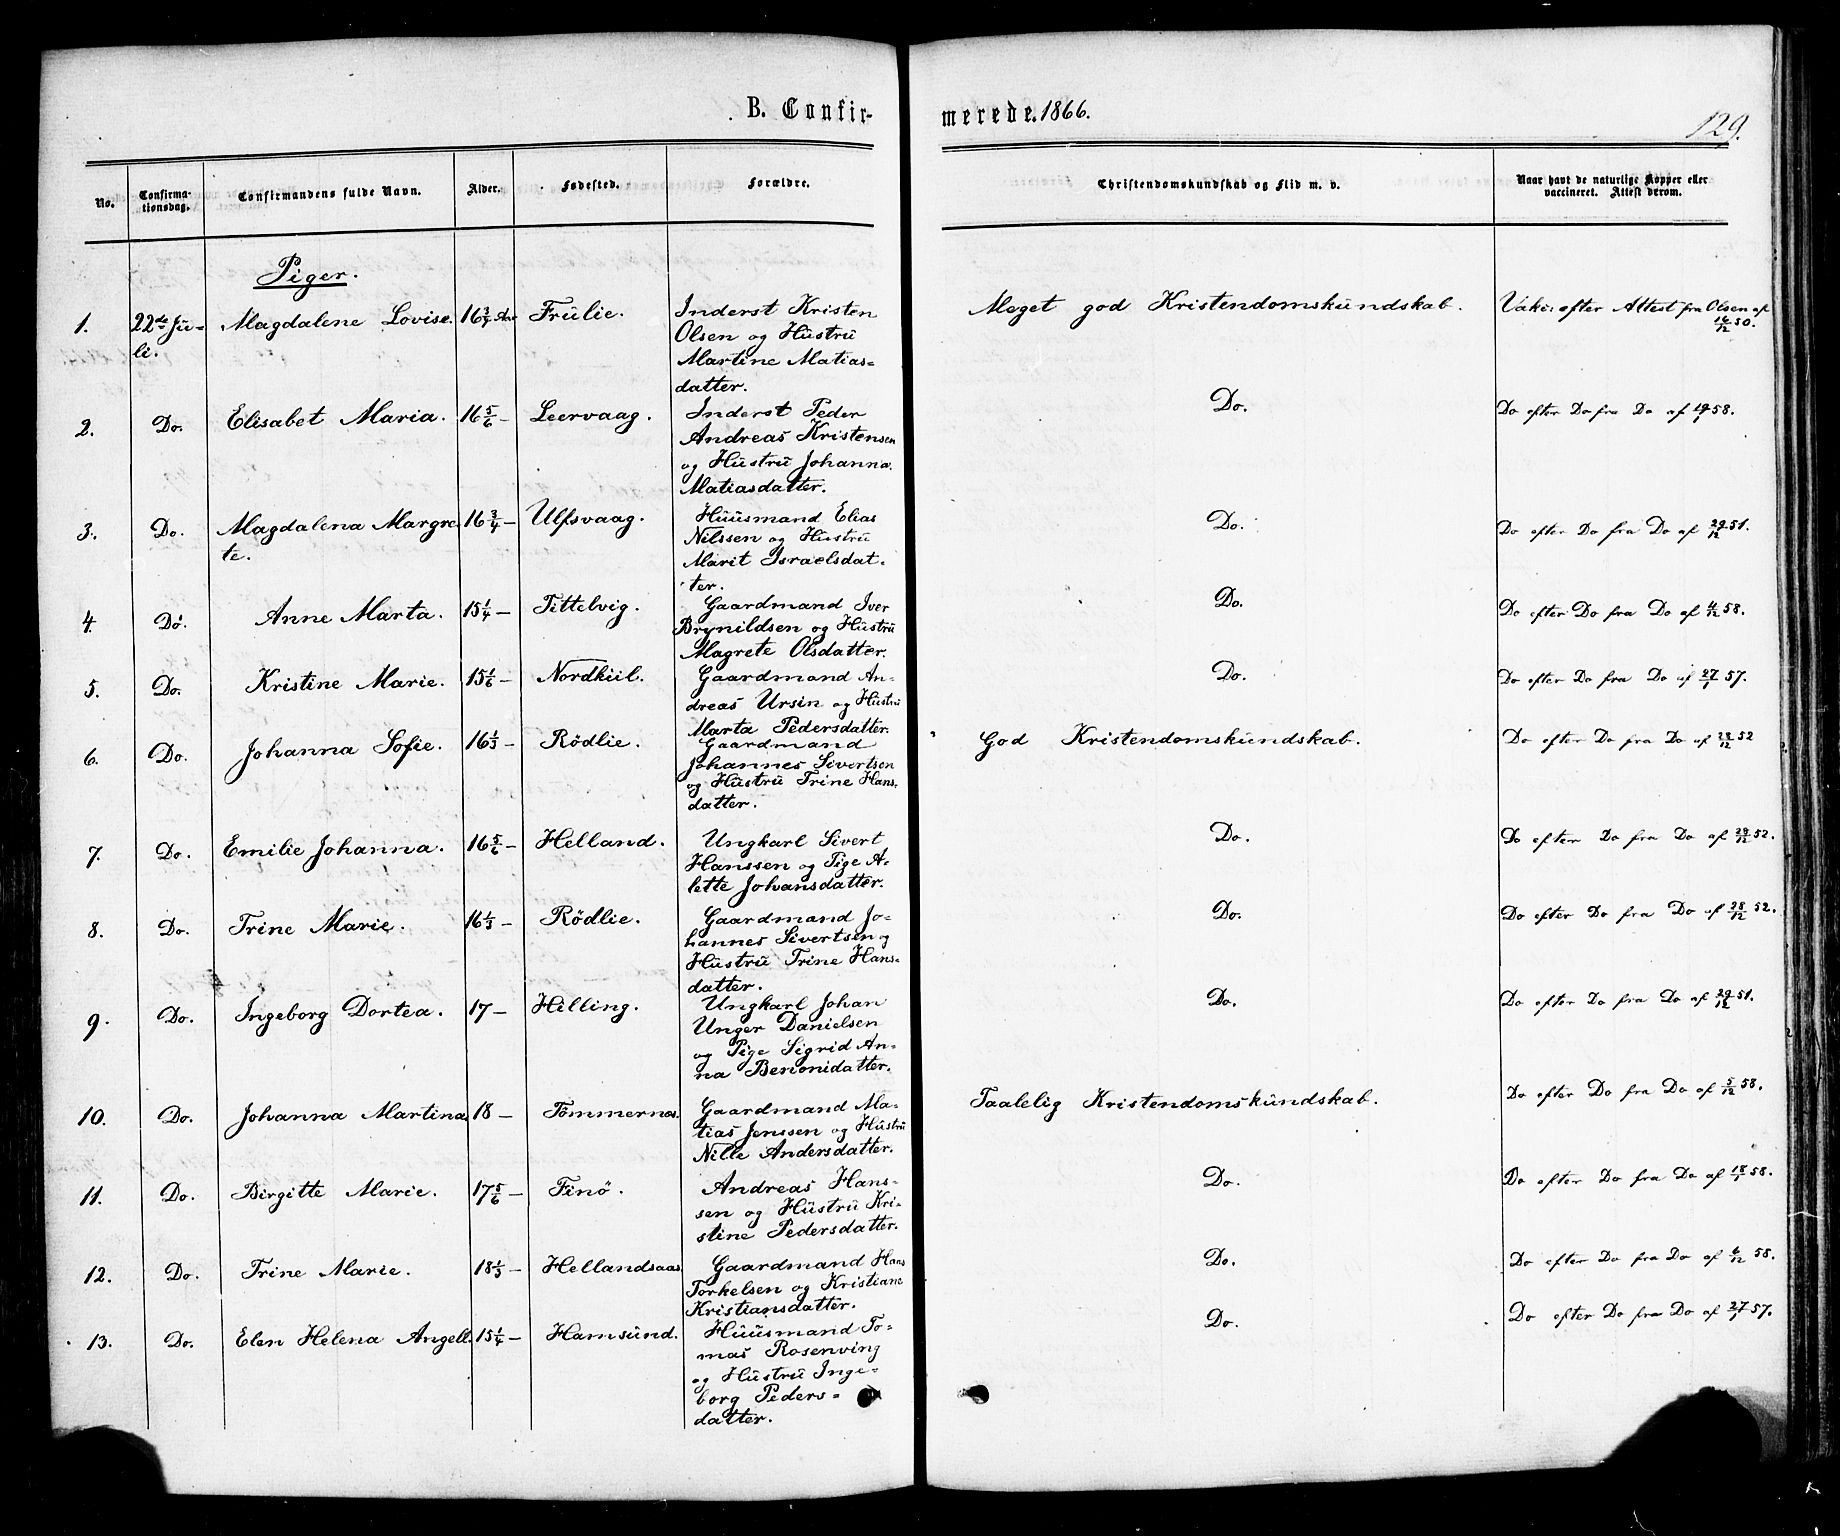 B. Confir-
merede. 1866.
129.
No.
Confirma-
tionsdag.
Confirmandens fulde Navn.
Alder.
Fødested.
Forældre.
Christendomskundskab og Flid m. v.
Naar havt de naturlige Kopper eller
vaccineret. Attest derom.
Piger.
1. 22de Ju-
li.
Magdalene Lovise. 16 3/4 Aar Frulie.
Inderst Kristen
Olsen og Hustru
Martine Matias-
datter.
Meget god Kristendomskundskab.
Vaki: efter Attest fra Olsen af
16/12 50.
2. Do. Elisabet Maria. 16 5/6 – Leervaag.
Inderst Peder
Andreas Kristensen
og Hustru Johanna
Matiasdatter.
Do.
Do efter Do fra Do af 58.
3. Do. Magdalena Margre-
te.
16 3/4 – Ulfsvaag.
Huusmand Elias
Nilssen og Hustru
Marit Israelsdat-
ter.
Do.
Do efter Do fra Do af 29/12 51.
4. Do. Anne Marta. 15 1/4 – Tittelvig.
Gaardmand Iver
Brynildsen og Hustru
Magrete Olsdatter.
Do.
Do efter Do fra Do af 4/12 58.
5. Do. Kristine Marie. 15 1/6 – Nordkiil.
Gaardmand An-
dreas Ursin og Hustru
Marta Pedersdatter.
Do.
Do efter Do fra Do af 27/1 57.
6. Do. Johanna Sofie. 16 1/3 – Rödlie.
Gaardmand
Johannes Sivertsen
og Hustru Trine Hans-
datter.
God Kristendomskundskab.
Do efter Do fra Do af 28/12 52
7. Do. Emilie Johanna. 16 5/6 – Helland.
Ungkarl Sivert
Hanssen og Pige A-
lette Johansdatter.
Do.
Do efter Do fra Do af 29/12 52.
8. Do. Trine Marie. 16 1/3 – Rödlie.
Gaardmand Jo-
hannes Sivertsen og
Hustru Trine Hans-
datter.
Do.
Do efter Do fra Do af 28/12 52.
9. Do. Ingeborg Dortea. 17 – Helling.
Ungkarl Johan
Unger Danielsen
og Pige Sigrid An-
na Benonidatter.
Do.
Do efter Do fra Do af 29/12 51.
10. Do. Johanna Martina 18 – Tömmernes.
Gaardmand Ma-
tias Jenssen og Hustru
Nille Andersdatter.
Taalelig Kristendomskundskab.
Do efter Do fra Do af 5/12 58.
11. Do. Birgitte Marie. 17 5/6 – Finö.
Andreas Hans-
sen og Hustru Kri-
stine Pedersdatter.
Do.
Do efter Do fra Do af 18/1 58.
12. Do. Trine Marie. 18 1/3 – Hellandsaas.
Gaardmand Hans
Torkelsen og Kristiane
Kristiansdatter.
Do.
Do efter Do fra Do af 6/12 58.
13. Do. Elen Helena Angell. 15 1/4 – Hamsund.
Huusmand To-
mas Rosenving
og Hustru Inge-
borg Peders-
datter.
Do.
Do efter Do fra Do af 27/1 57.